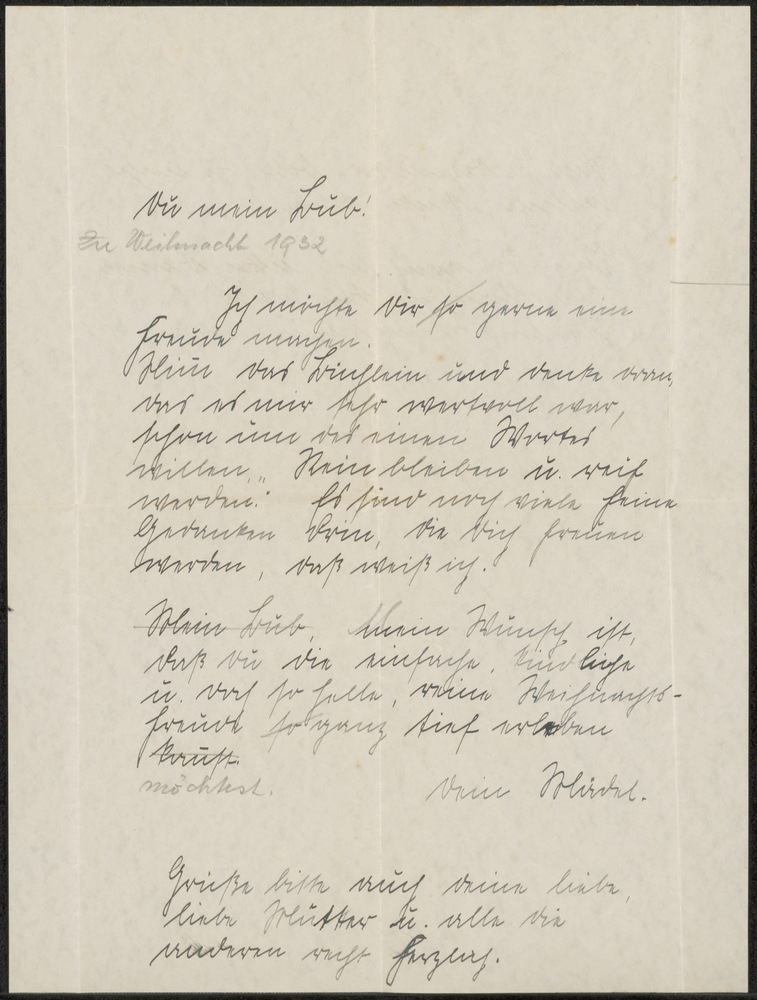 Du mein Bub!
Zu Weihnacht 1932
Ich möchte Dir so gerne eine
Freude machen.
Nimm das Büchlein und denke dran,
das es mir sehr wertvoll war,
schon um des einen Wortes
willen, „Rein bleiben u. reif
werden." Es sind noch viele feine
Gedanken drin, die Dich freuen
werden, daß weiß ich.
Mein Bub, Mein Wunsch ist,
daß Du die einfache, kindliche
u. doch so helle, reine Weihnachts-
freude so ganz tief erleben
kannst.
möchtest.
Dein Mädel.
Grüße bitte auch deine liebe,
liebe Mutter u. alle die
anderen recht herzlich.